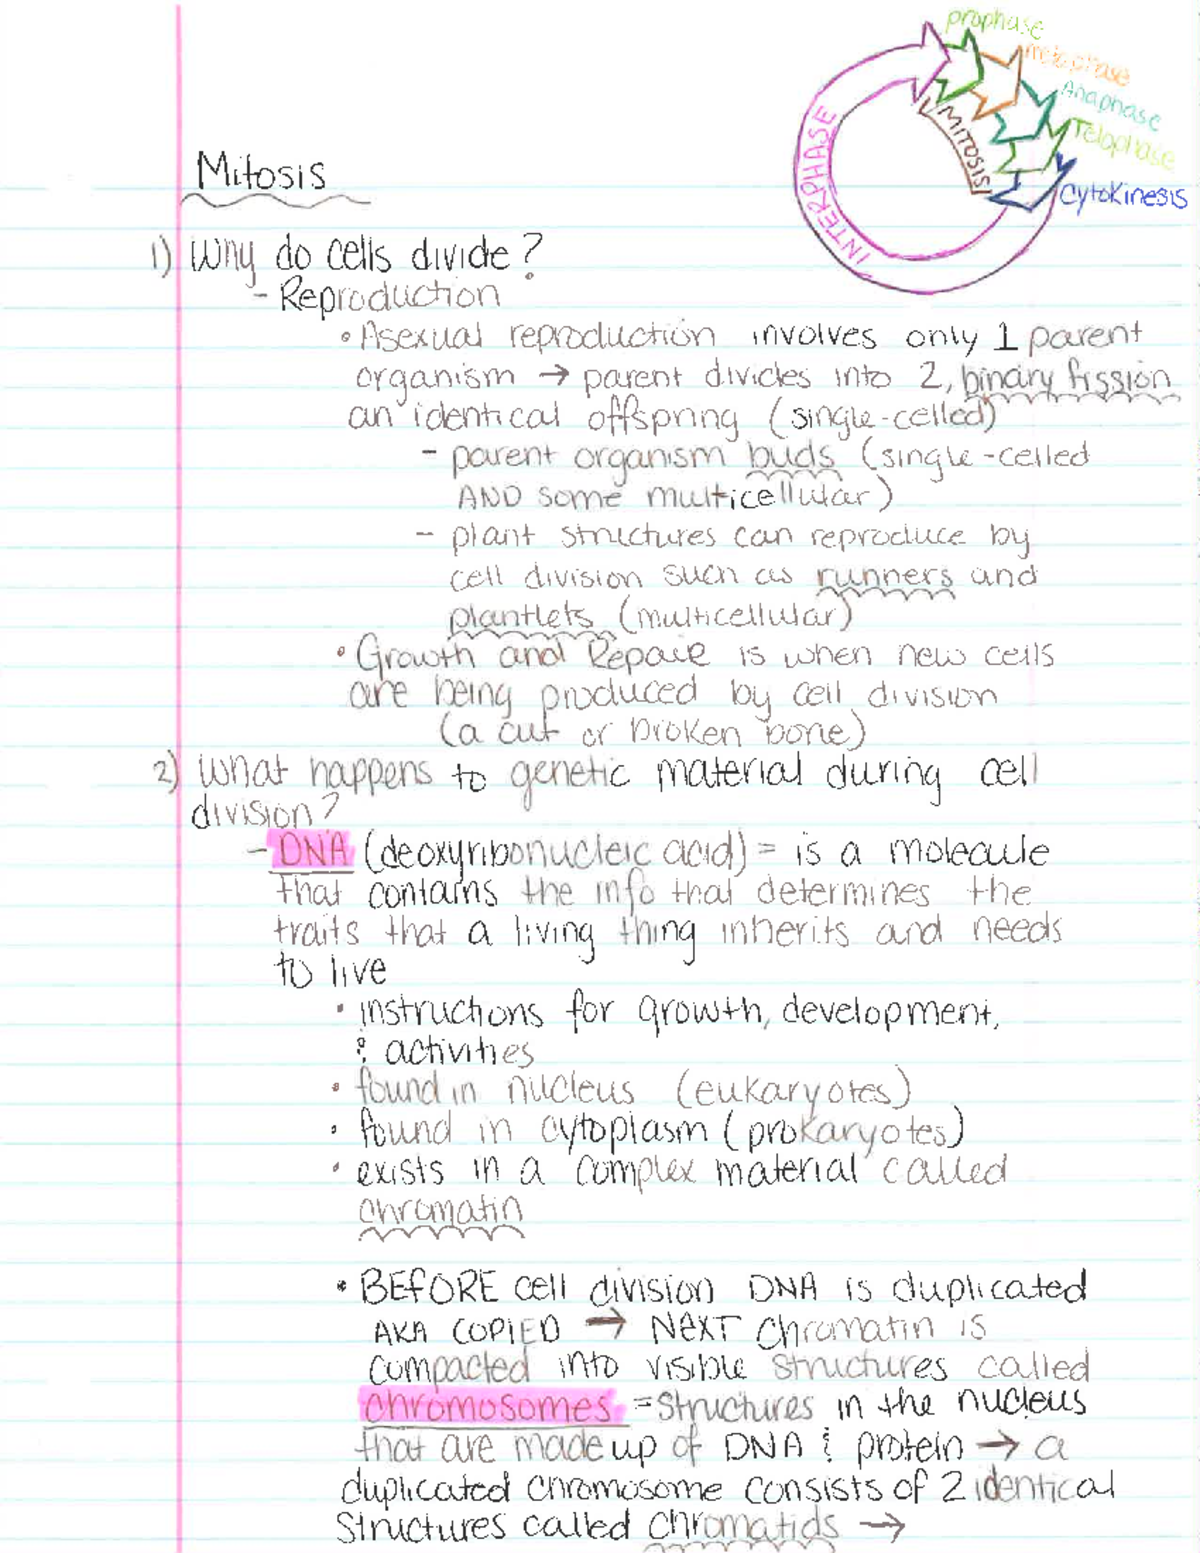 prophase
metaphase
Anaphase
Telophase
Cytokinesis
MITOSIS
INTERPHASE
Mitosis
1) Why do cells divide?
- Reproduction
• Asexual reproduction involves only 1 parent
organism → parent divides into 2, binary fission
an identical offspring (single-celled)
- parent organism buds (single-celled
AND some multicellular)
- plant structures can reproduce by
cell division such as runners and
plantlets (multicellular)
• Growth and Repair is when new cells
are being produced by cell division
(a cut or broken bone)
2) What happens to genetic material during cell
division?
- DNA (deoxyribonucleic acid) = is a molecule
that contains the info that determines the
traits that a living thing inherits and needs
to live
• instructions for growth, development,
& activities
• found in nucleus (eukaryotes)
• found in cytoplasm (prokaryotes)
• exists in a complex material called
chromatin
• BEFORE cell division DNA is duplicated
AKA COPIED → NEXT chromatin is
compacted into visible structures called
chromosomes = structures in the nucleus
that are made up of DNA & protein → a
duplicated chromosome consists of 2 identical
structures called chromatids →